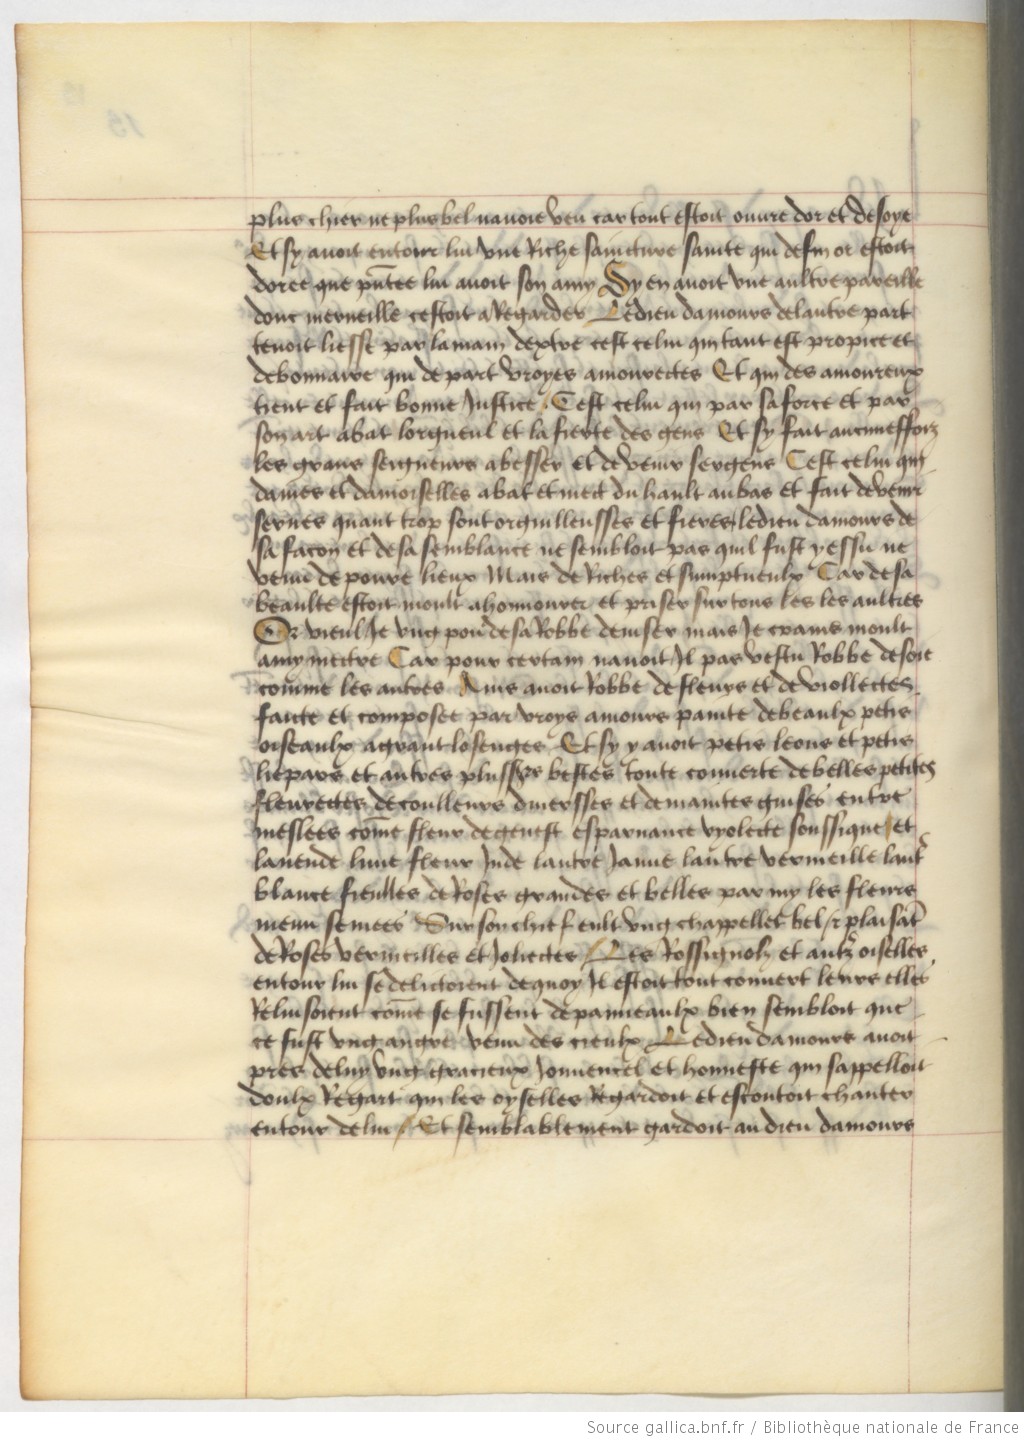 plus chier ne plus bel navoie veu car tout estoit ouvre dor et de soye
Et sy avoit entour lui une Riche saincture sainte qui de fin or estoit
doree que pntee lui avoit son amy Sy en avoit une aultre pareille
donc merveille cestoit a Regarder Le dieu damours de lautre part
tenoit liesse par la main dextre cest celui qui tant est propice et
debonnaire qui de part vroyes amourectes Et qui des amoureux
tient et fait bonne Justice Cest celui qui par sa force et par
son art abat lorgueul et la fierte des gens Et sy fait aucuneffoiz
les grans seigneurs abesser et devenir sergens Cest celui qui
dames et damoiselles abat et mect du hault au bas et fait devenir
serves quant trop sont orguilleusses et fieres le dieu damours de
sa facon et de sa semblance ne sembloit pas quil fust yessu ne
venu de povre lieux Mais de Riches et sumptueulx Car de sa
beaulte estoit moult a honnourer et priser sur tous les les aultres
Or vieul Je ung pou de sa Robbe deviser mais Je crains moult
a my mectre Car pour certain navoit Il pas vestu Robbe de soie
comme les autres Ains avoit Robbe de fleurs et de viollectes
faicte et composee par vroys amours painte de beaulx petis
oiseaulx a grant losenges Et sy y avoit petis leons et petis
liepars et autres plussrs bestes toute couverte de belles petites
fleurectes de coulleurs diversses et de maintes guises entre
meslees come fleur de genest esparvance vyolecte soussique et
lavende lune fleur Inde lautre Jaune lautre vermeille laut
blance fieulles de Roses grandes et belles par my les fleurs
menu semees Sur son chief eult ung chappellet bel et plaisat
de Roses vermeilles et Joliectes Les Rossignolz et autz oiselles
entour lui se delictoient de quoy Il estoit tout couvert leurs elles
Reluisoient come se fussent de panneaulx bien sembloit que
ce fust ung angre venu des cieulx Le dieu damours avoit
pres de luy ung gracieux Jouvencel et honneste qui sappelloit
doulx Regart qui les oyselles Regardoit et escoutoit chanter
entour de lui Et semblablement gardoit au dieu damours
Source gallica.bnf.fr / Bibliothèque nationale de France